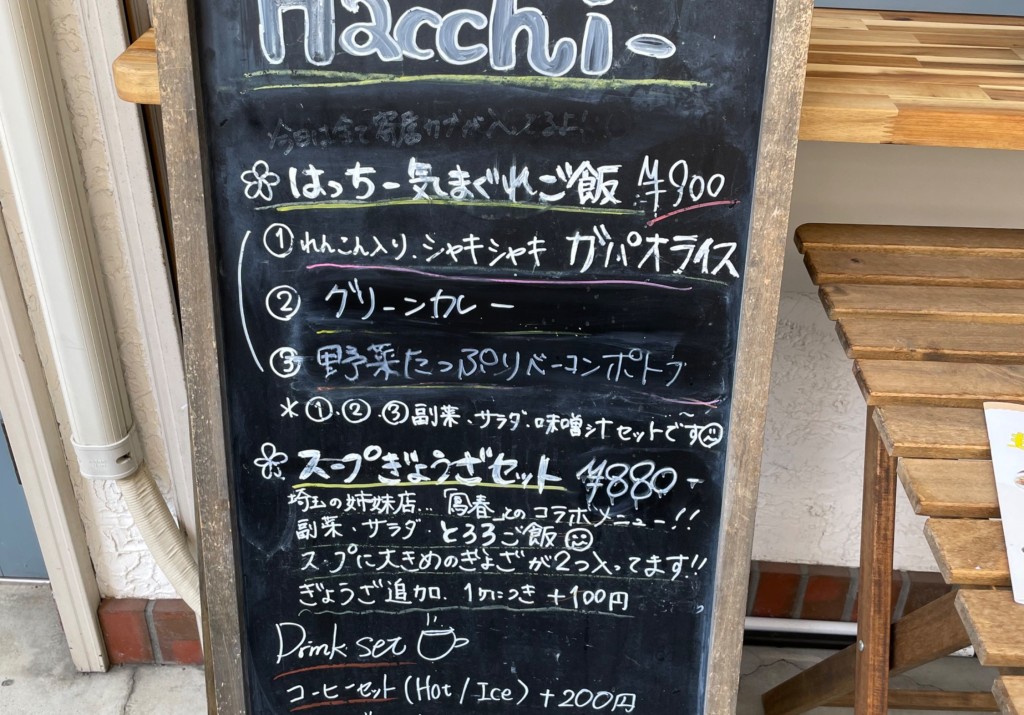 Hacchi-
❀はっちー気まぐれご飯 ¥900
①れんこん入り、シャキシャキ ガパオライス
② グリーンカレー
③ 野菜たっぷりベーコンポトフ
*①.②.③副菜、サラダ、味噌汁セットです
❀スープぎょうざセット ¥880-
埼玉の姉妹店…「鳳春」とのコラボメニュー!!
副菜、サラダ、とろろご飯
スープに大きめのぎょうざが2つ入ってます!!
ぎょうざ追加. 1ヶにつき +100円
Drink set
コーヒーセット(Hot/Ice) +200円